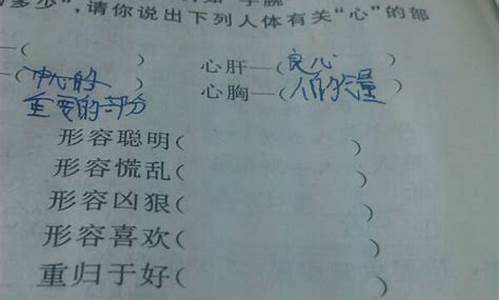 多少”,请你说出下列人体有关“心”的部
—( ) 心肝—(良心)
—(中心的重要的部分) 心胸—(人的气量)
形容聪明( )
形容慌乱( )
形容凶狠( )
形容喜欢( )
重归于好( )